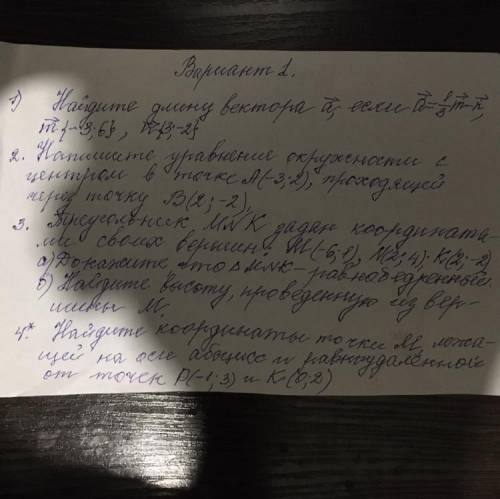 Вариант 1.
1) Найдите длину вектора a⃗, если a⃗=1/3m⃗-n⃗,
m⃗{-3;6}, n⃗{3;-2}
2. Напишите уравнение окружности с
центром в точке A(-3;2), проходящей
через точку B(2;-2),
3. Треугольник MNK задан координата-
ми своих вершин: M(-6;1), N(2;4), K(2;-2)
а) Докажите что △MNK - равнобедренный
б) Найдите высоту, проведенную из вер-
шины M.
4.* Найдите координаты точки M, лежа-
щей на оси абсцисс и равноудалённой
от точек P(-1;3) и K(0;2)